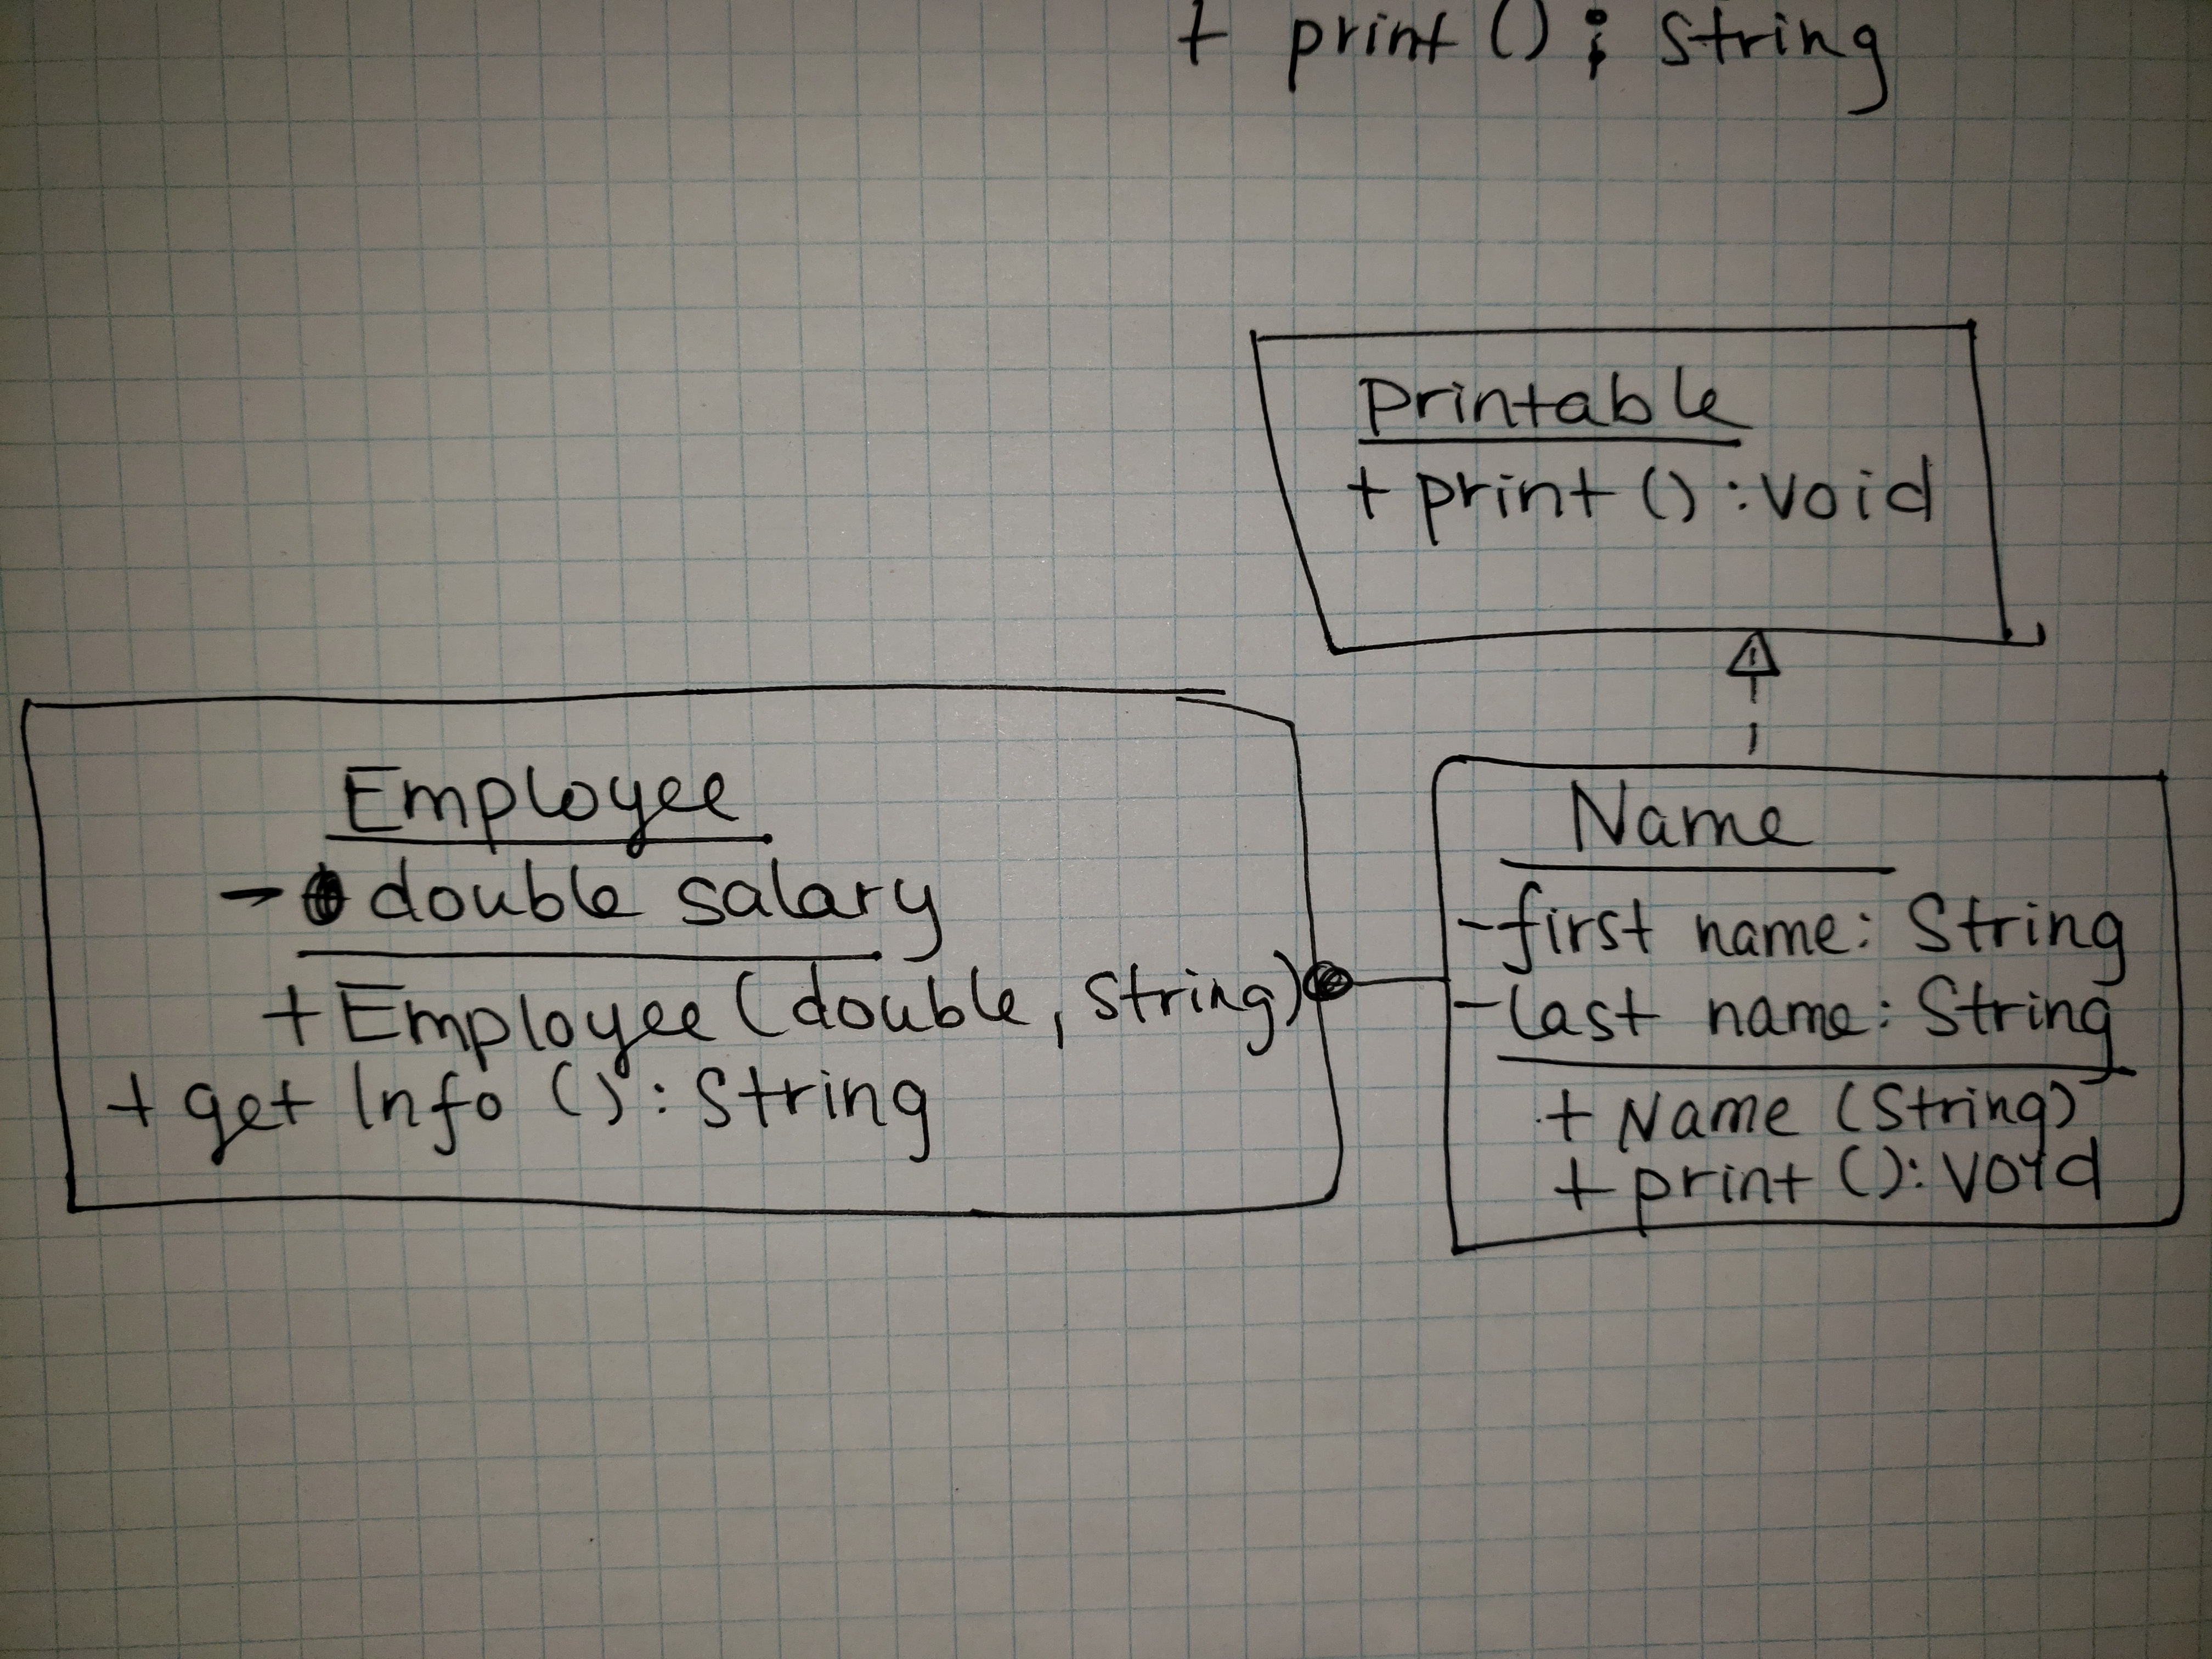 + print () : String
Printable
+ print () : void
Employee
- double salary
+ Employee (double, string)
+ get Info () : String
Name
- first name : String
- last name : String
+ Name (String)
+ print () : void